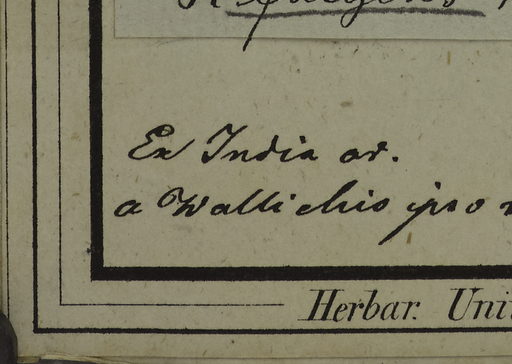 Ex India or.
a Wallichio ipso
Herbar. Uni